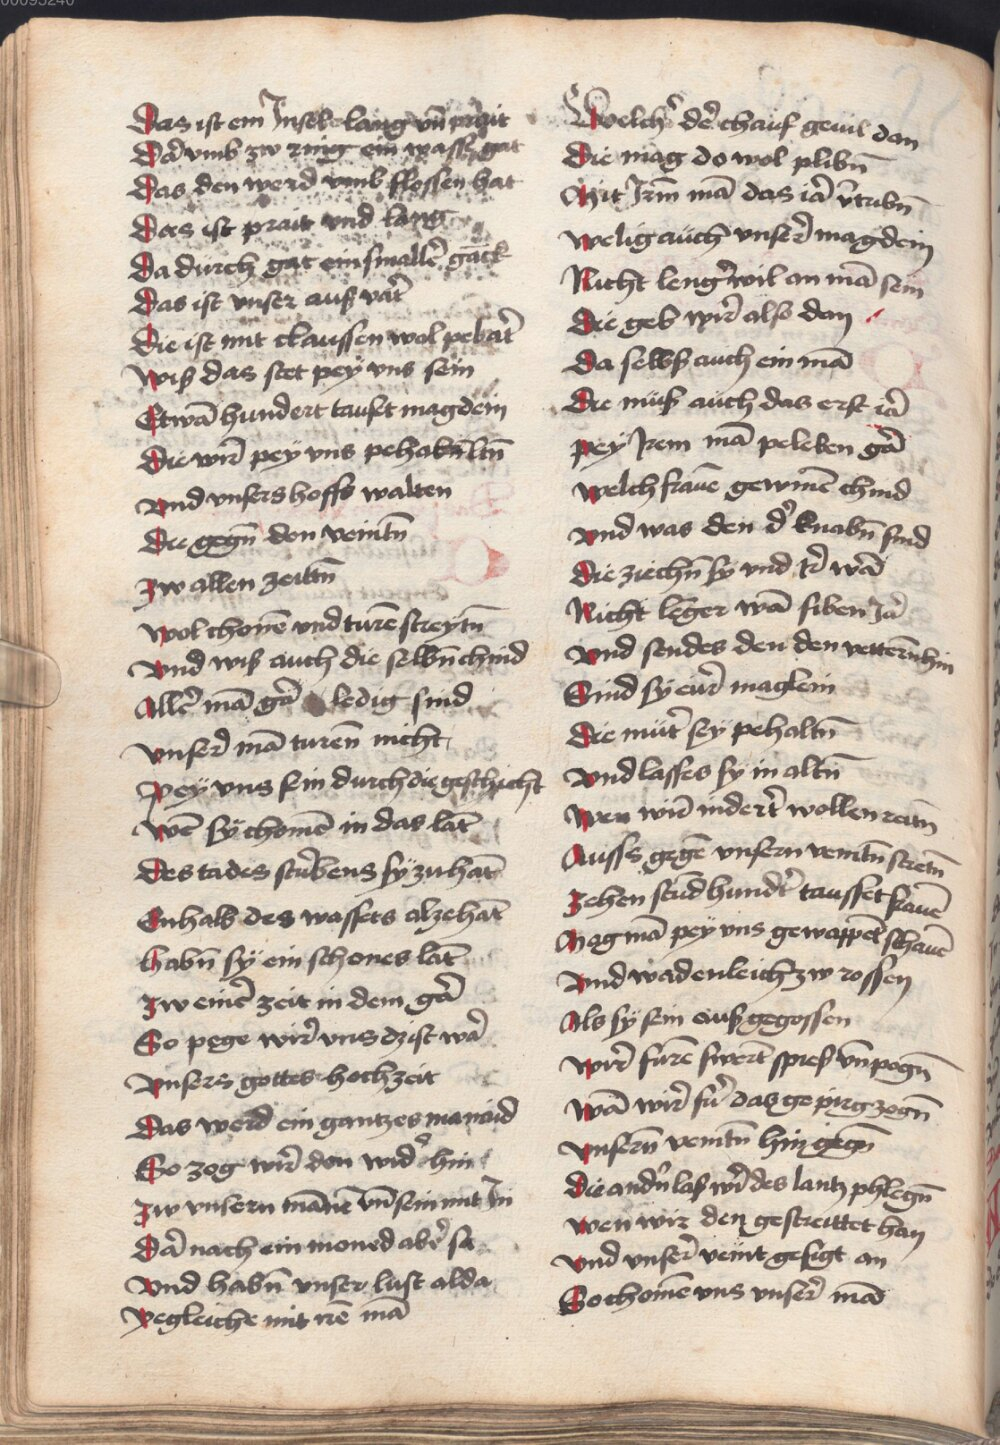 00095240
Das ist ein Insel lang vn̄ prait
Da᷑ vmb zw ring ein wasser gat
Das den werd vmb flossen hat
Das ist prait vnd lang
Da durch gat ein smaller ganck
Das ist vnser auß vart
Die ist mit claussen wol pebart
Wiß das stet pey vns sein
Etwā hundert tauset magdein
Die wir pey vns pehaltn̄
Vnd vnsers hoffs walten
Die gegn̄ den veintn̄
Zw allen zeittn̄
Wol chonē vnd turē streytn̄
Vnd wiß auch die selbn̄ chind
Aller mā gar ledig sind
Vnser mā turen nicht
Pey vns sein durch die geschicht
Wē sy chomē in das lāt
Des tades sterbens sy zu hāt
Enhalb des wassers alzehāt
Habn̄ sy ein schones lāt
Zw einer zeit in dem gar
So pege wir vns dz ist war
Vnsers gottes hochzeit
Das werd ein gantzes maneid
So zog wir den wider hin
Zw vnsern mānē vn̄ sein mit In
Dar nach ein moned aber sa
Vnd habn̄ vnser lust alda
Yegleiche mit irē mā
Welcher der chauf geuil dan
Die mag do wol plibn̄
Mit Irm mā das iar v̄tribn̄
Welig auch vnser magdein
Nicht lenger wil an mā sein
Die geb wir also dan
Da selbß auch ein mā
Die muß auch das erst iar
Pey Irem mā peleben gar
Welch frauē gewinē chind
Vnd was den der knabn̄ sind
Die ziechn̄ sy vnd ir war
Nicht lenger wā siben Jar
Vnd sendes den den vettern hin
Sind sy eur maglein
Die muter sey pehaltn̄
Vnd lasses sy in altn̄
Wen wir indert wollen reitn̄
Auss gegē vnsern veintn̄ streitn̄
Zehen stund hundert tausset frauē
Mag mā pey vns gewappēt schauē
Vnd wadenleich zw rossen
Als sy sein auß gegossen
Wir furē swert spieß vn̄ pogn̄
Wā wir fur das gepirg zogn̄
Vnsern veintn̄ hin gegn̄
Die andn̄ laß wir des lantz phlegn̄
Wen wir den gestreittet han
Vnd vnser veint gesigt an
So chomē vns vnser mā